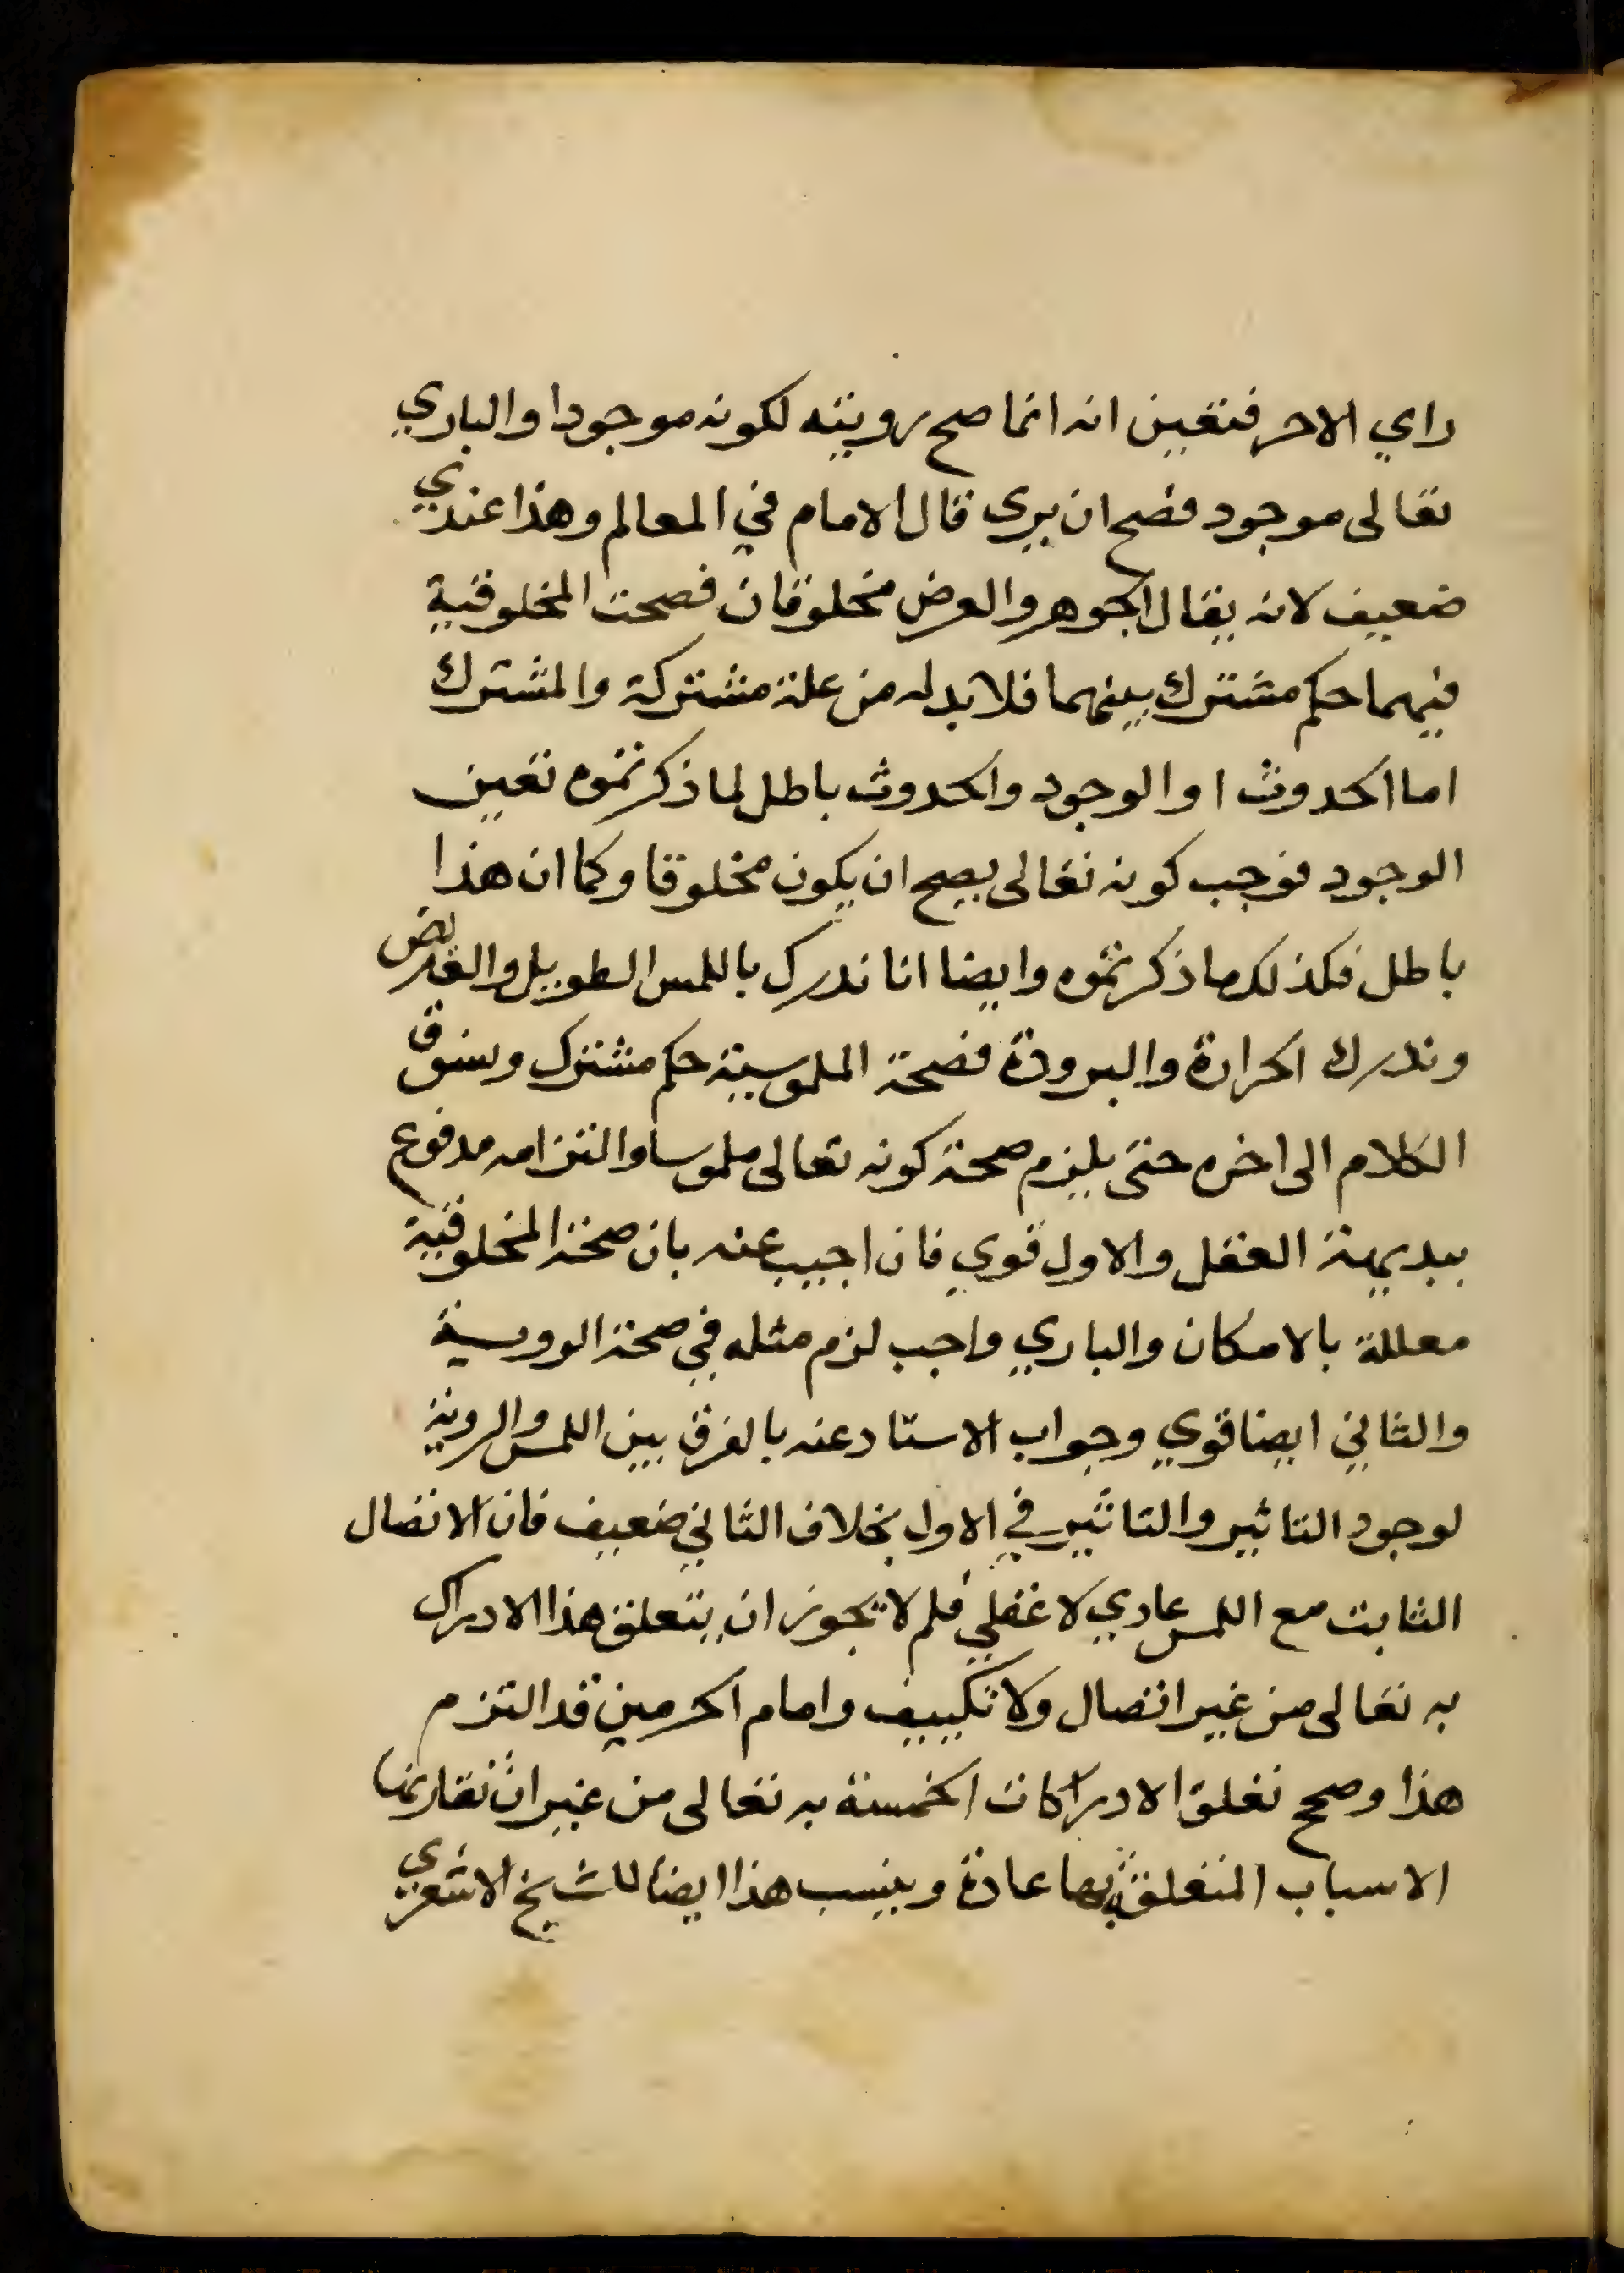 راي الاخر فتعين انه انما صح رويته لكونه موجودا والباري
تعالى موجود فصح ان يرى قال الامام في المعالم وهذا عندي
ضعيف لانه يقال الجوهر والعرض مخلوقان فصحت المخلوقية
فيهما حكم مشترك بينهما فلا بد له من علة مشتركة والمشترك
اما الحدوث او الوجود والحدوث باطل لما ذكرتموه تعين
الوجود فوجب كونه تعالى يصح ان يكون مخلوقا وكما ان هذا
باطل فكذلك ما ذكرتموه وايضا انا ندرك باللمس الطويل والعريض
وندرك الحرارة والبرودة فصحة الملموسية حكم مشترك ونسوق
الكلام الى اخره حتى يلزم صحة كونه تعالى ملموسا والتزامه مدفوع
ببديهة العقل والاول قوي فان اجيب عنه بان صحة المخلوقية
معللة بالامكان والباري واجب لزم مثله في صحة الرويية
والثاني ايضا قوي وجواب الاستاد عنه بالفرق بين اللمس والروية
لوجود التاثير والتاثير في الاول بخلاف الثاني ضعيف فان الاتصال
الثابت مع اللمس عادي لا عقلي فلم لا يجوز ان يتعلق هذا الادراك
به تعالى من غير اتصال ولا تكييف وامام الحرمين قد التزم
هذا وصحح تعلق الادراكات الخمسة به تعالى من غير ان تقارنها
الاسباب المتعلقة بها عادة وينسب هذا ايضا للشيخ الاشعري